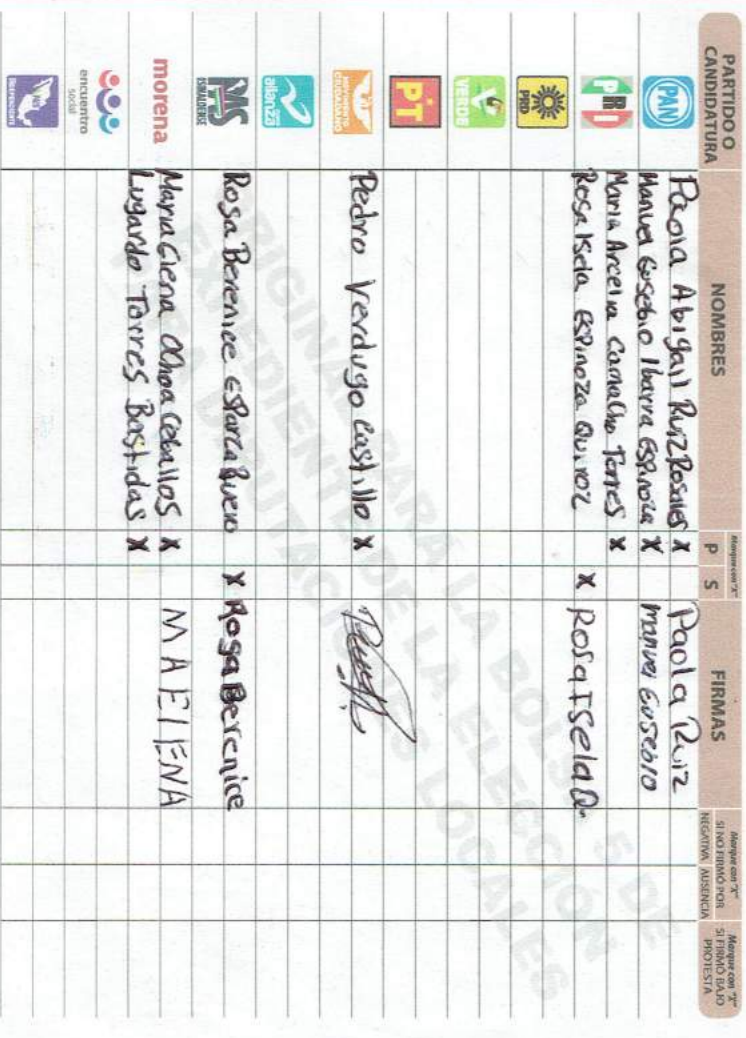 PARTIDO O CANDIDATURA NOMBRES Marque con "X" P S FIRMAS Marque con "X" SI NO FIRMÓ POR NEGATIVA AUSENCIA Marque con "X" SI FIRMÓ BAJO PROTESTA
PAN Paola Abigail Ruiz Rosales X Paola Ruiz
Manuel Eusebio Ibarra Espinoza X Manuel Eusebio
PRI Maria Arcelia Camacho Torres X
Rosa Isela Espinoza Quiroz X Rosa Isela Q.
PRD
VERDE
PT
MOVIMIENTO CIUDADANO Pedro Verdugo Castillo X
alianza
PAS SINALOENSE Rosa Berenice Esparza Bueno X Rosa Berenice
morena Maria Elena Ochoa Ceballos X MA ELENA
Lugardo Torres Bastidas X
encuentro social
INDEPENDIENTE
ORIGINAL PARA LA BOLSA 5 DE
EXPEDIENTE DE LA ELECCIÓN
PARA DIPUTACIONES LOCALES